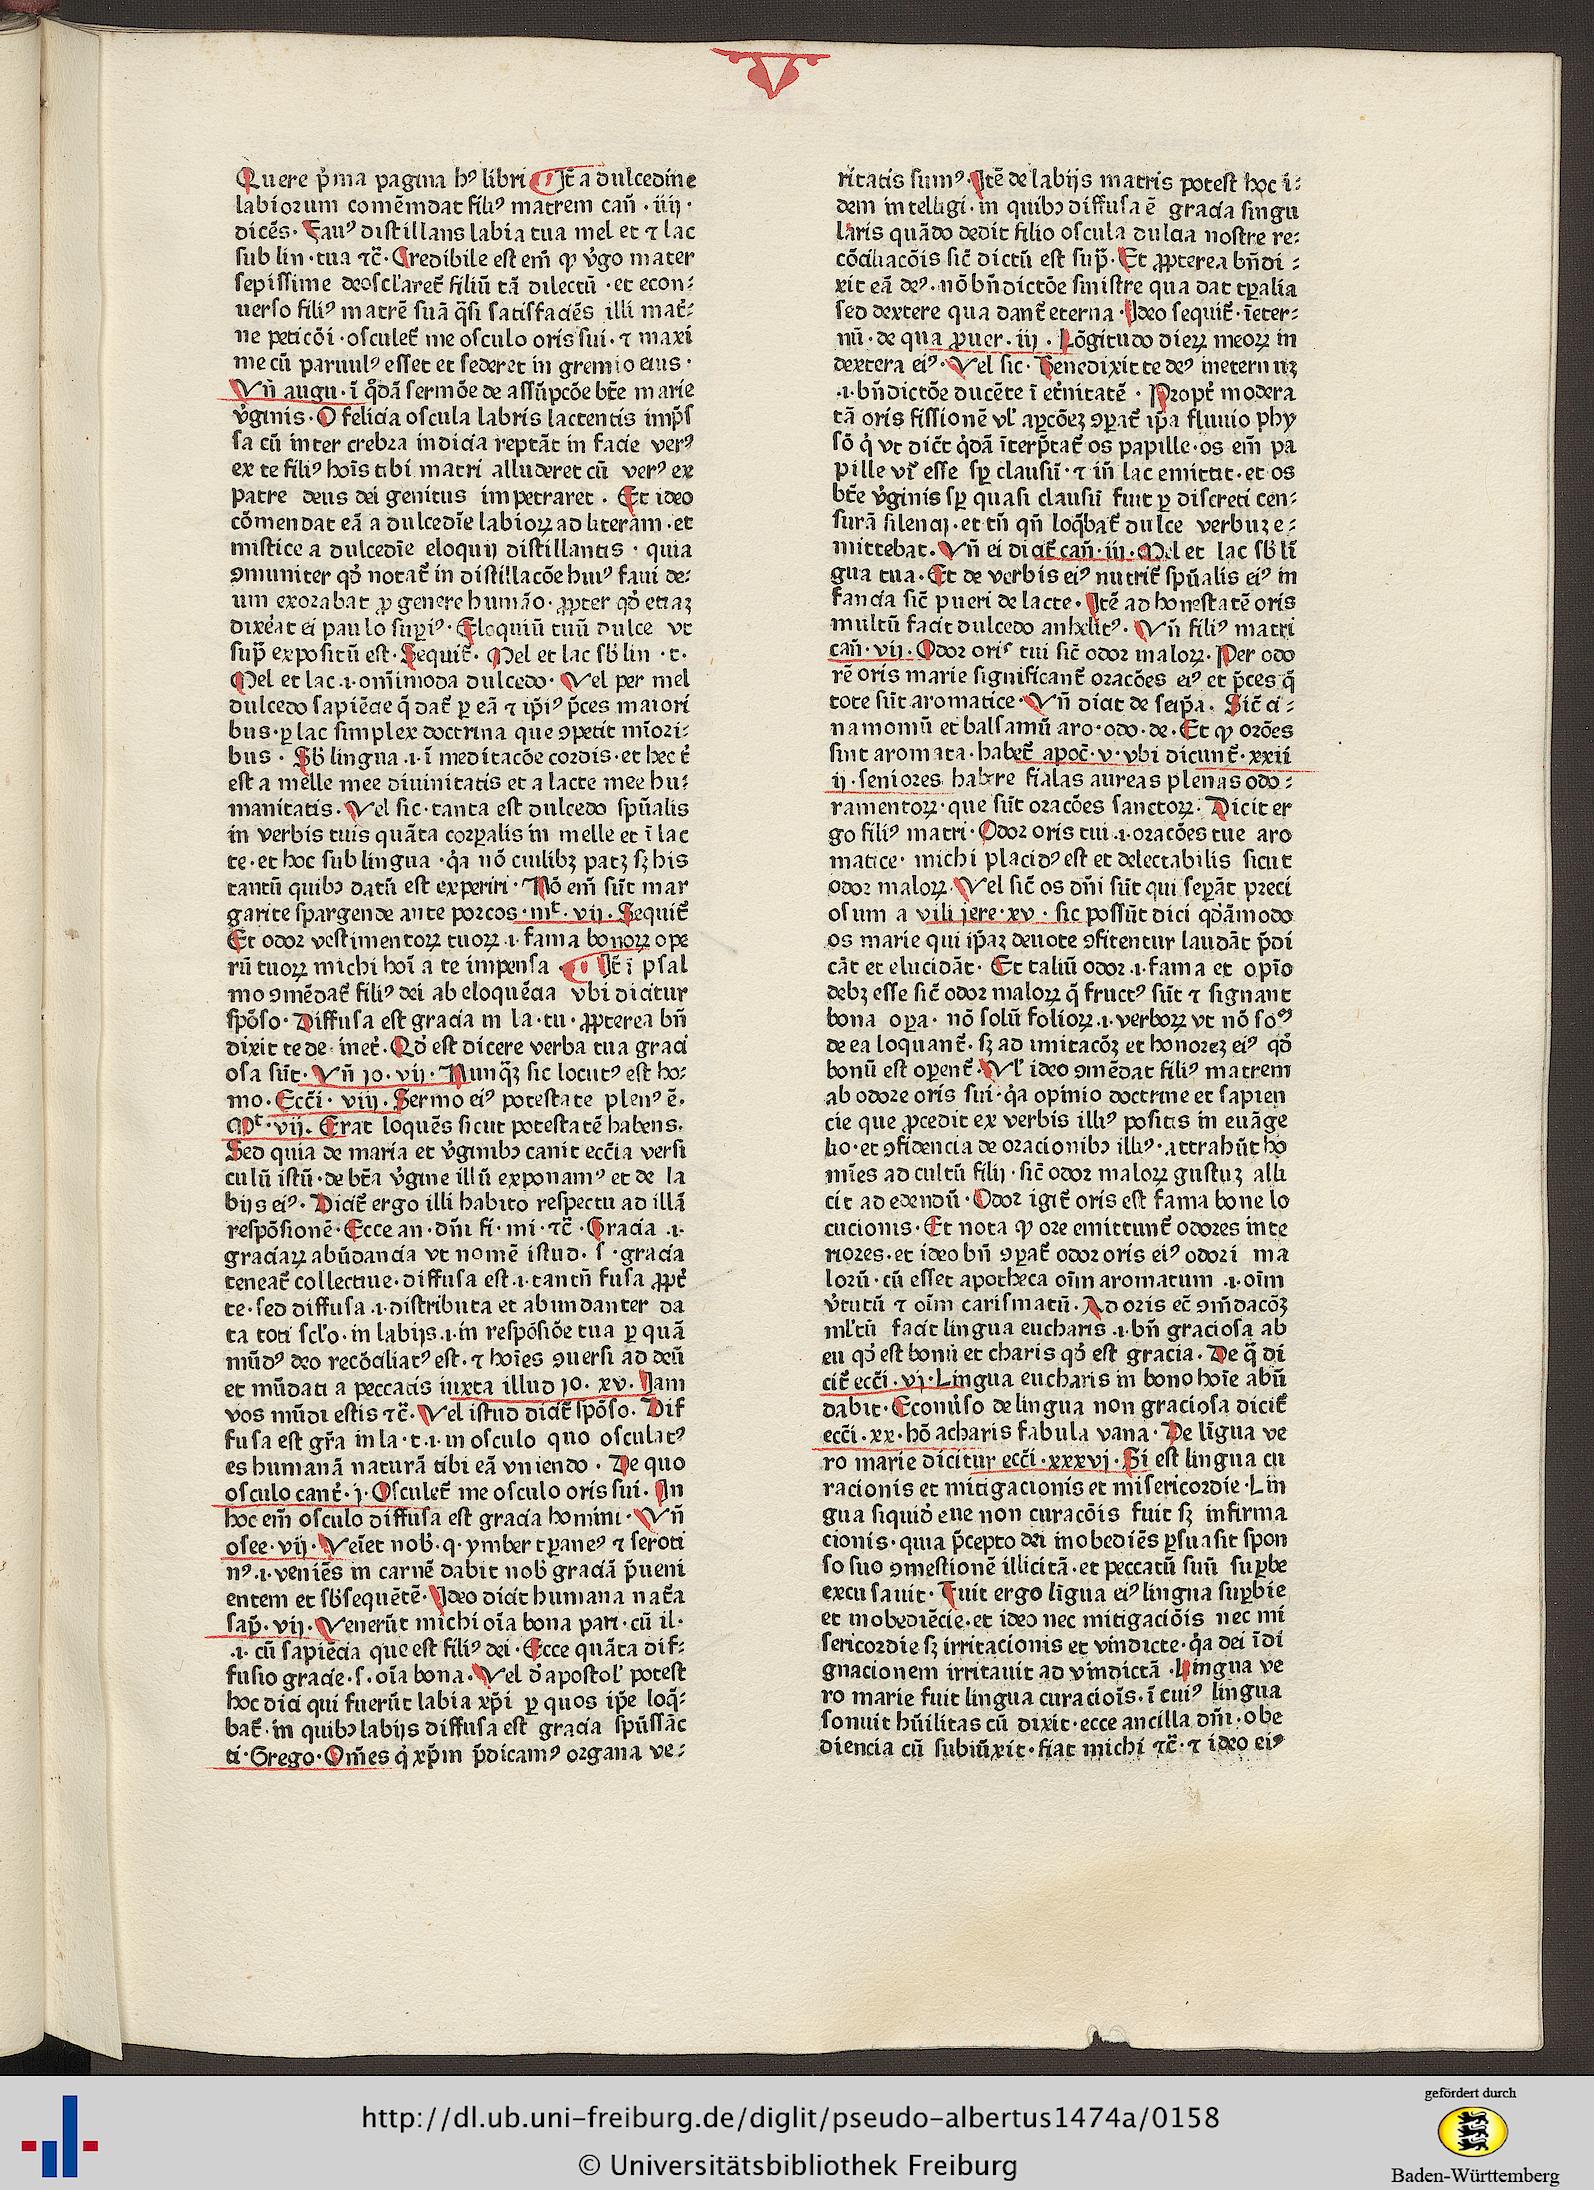 V
Quere p̓ma pagina hꝰ libri It̄ a dulcedine
labiorum comēmdat filiꝰ matrem can̄ · iiij ·
dicēs. Fauꝰ distillans labia tua mel et ⁊ lac
sub lin · tua ⁊c̄. Credibile est em̄ ꝙ v̓go mater
sepissime deoscl̓aret̄ filiū tā dilectū · et econ:
uerso filiꝰ matrē suā q̄si satisfaciēs illi mat̄:
ne peticōi · osculet̄ me osculo oris sui. ⁊ maxi
me cū paruulꝰ esset et sederet in gremio eius ·
Vn̄ augu · ī q̓dā sermōe de assūpcōe bt̄e marie
v̓ginis. O felicia oscula labris lactentis imp̄s
sa cū inter crebra indicia reptāt in facie verꝰ
ex te filiꝰ hoīs tibi matri alluderet cū verꝰ ex
patre deus dei genitus impetraret . Et ideo
cōmendat eā a dulcedīe labioꝝ ad literam · et
mistice a dulcedīe eloquij distillantis · quia
ꝯmuniter qd̓ notat̄ in distillacōe huiꝰ faui de:
um exorabat ꝓ genere humāo · ꝓpter qd̓ etiaꝫ
dixe̓at ei paulo supiꝰ · Eloquiū tuū dulce vt
sup̄ expositū est · Sequit̄. Mel et lac sb̓ lin · t.
Mel et lac .i. om̄imoda dulcedo · Vel per mel
dulcedo sapiēcie q̄ dat̄ ꝑ eā ⁊ ip̄iꝰ p̄ces maiori
bus · ꝑ lac simplex doctrina que ꝯpetit mīori:
bus · Sb̓ lingua .i. ī meditacōe cordis · et hec t̓
est a melle mee diuinitatis et a lacte mee hu:
manitatis. Vel sic · tanta est dulcedo spūalis
in verbis tuis quāta corꝑalis in melle et ī lac
te · et hoc sub lingua · q̓a nō cuilibꝫ patꝫ sꝫ his
tantū quibꝰ datū est experiri · Nō em̄ sūt mar
garite spargende ante porcos · mt̄. vij. Sequit̄
Et odor vestimentoꝝ tuoꝝ .i. fama bonoꝝ ope
rū tuoꝝ michi hoī a te impensa · It̄ ī psal
mo ꝯmēdat̄ filiꝰ dei ab eloquēcia vbi dicitur
spōso · Diffusa est gracia in la · tu · ꝓpterea bn̄
dixit te de · inet̓. Qd̓ est dicere verba tua graci
osa sūt · Vn̄ jo. vij · Nunq̄ꝫ sic locutꝰ est ho:
mo. Ecc̄i · viij. Sermo eiꝰ potestate plenꝰ ē.
Mt̄ · vij. Erat loquēs sicut potestatē habens.
Sed quia de maria et v̓ginibꝰ canit ecc̄ia versi
culū istū · de bt̄a v̓gine illū exponamꝰ et de la
bijs eiꝰ. Dicit̄ ergo illi habito respectu ad illā
respōsionē · Ecce an · dn̄i fi · mi · ⁊c̄ · Gracia .i.
graciaꝝ abūdancia vt nomē istud. s · gracia
teneat̄ collectiue · diffusa est .i. tantū fusa ꝓpt̓
te · sed diffusa .i. distributa et abundanter da
ta toti scl̓o · in labijs .i. in respōsiōe tua ꝑ quā
mūdꝰ deo recōciliatꝰ est. ⁊ hoīes ꝯuersi ad deū
et mūdati a peccatis iuxta illud jo. xv. Iam
vos mūdi estis ⁊c̄. Vel istud dicit̄ spōso. Dif
fusa est gr̄a in la · t .i. in osculo quo osculatꝰ
es humanā naturā tibi eā vniendo . De quo
osculo cant̄ · j. Osculet̄ me osculo oris sui. In
hoc em̄ osculo diffusa est gracia homini · Vn̄
osee · vij · Veīet nob̓. q · ymber tꝑaneꝰ ⁊ seroti
nꝰ .i. veniēs in carnē dabit nob̓ graciā p̄ueni
entem et sb̓sequētē. Ideo dicit humana nat̄a
sap̄. vij. Venerūt michi oīa bona pari · cū il ·
.i. cū sapiēcia que est filiꝰ dei · Ecce quāta dif:
fusio gracie · s. oīa bona. Vel d̓ apostol̓ potest
hoc dici qui fuerūt labia xp̄i ꝑ quos ip̄e loq̄:
bat̄ · in quibꝰ labijs diffusa est gracia spūssāc
ti · Grego · Om̄es q̄ xp̄m p̄dicamꝰ organa ve:
ritatis sumꝰ. Itē de labijs matris potest hoc i:
dem intelligi · in quibꝰ diffusa ē gracia singu
laris quādo dedit filio oscula dulcia nostre re:
cōciliacōis sic̄ dictū est sup̄. Et ꝓpterea bn̄di:
xit eā deꝰ. nō bn̄dictōe sinistre qua dat tꝑalia
sed dextere qua dant̄ eterna · Ideo sequit̄ · īeter:
nū · de qua ꝓuer. iij . Lōgitudo dieꝝ meoꝝ in
dextera eiꝰ. Vel sic · Benedixit te deꝰ ineternuꝫ
.i. bn̄dictōe ducēte ī et̓nitatē · Propt̓ modera
tā oris fissionē vl̓ aꝑcōeꝫ ꝯꝑat̄ ip̄a fluuio phy
sō q̓ vt dic̄t q̓dā īterp̄tat̄ os papille · os em̄ pa
pille vr̄ esse sꝑ clausū · ⁊ in̄ lac emittit · et os
bt̄e v̓ginis sꝑ quasi clausū fuit ꝑ discreti cen:
surā silencij · et tn̄ qn̄ loq̄bat̄ dulce verbuꝫ e:
mittebat. Vn̄ ei dicit̄ can̄ · iij. Mel et lac sb̓ lī
gua tua. Et de verbis eiꝰ nutrit̄ spūalis eiꝰ in
fancia sic̄ pueri de lacte. Itē ad honestatē oris
multū facit dulcedo anhelitꝰ. Vn̄ filiꝰ matri
can̄ · vij. Odor oris tui sic̄ odor maloꝝ. Per odo
rē oris marie significant̄ oracōes eiꝰ et p̄ces q̄
tote sūt aromatice · Vn̄ dicit de seip̄a. Sic̄ ci:
namomū et balsamū aro · odo · de. Et ꝙ orōes
sint aromata · habet̄ apoc̄ · v · vbi dicunt̄ · xxii
ij · seniores habere fialas aureas plenas odo:
ramentoꝝ · que sūt oracōes sanctoꝝ. Dicit er
go filiꝰ matri · Odor oris tui .i. oracōes tue aro
matice · michi placidꝰ est et delectabilis sicut
odor maloꝝ. Vel sic̄ os dn̄i sūt qui sepāt preci
osum a vili jere · xv · sic possūt dici qd̓āmodo
os marie qui ip̄aꝫ deuote ꝯfitentur laudāt p̄di
cāt et elucidāt · Et taliū odor .i. fama et opīo
debꝫ esse sic̄ odor maloꝝ q̄ fructꝰ sūt ⁊ signant
bona oꝑa · nō solū folioꝝ .i. verboꝝ vt nō soꝰ
de ea loquant̄. sꝫ ad imitacōꝫ et honoreꝫ eiꝰ qd̓
bonū est oꝑent̄. Vl̓ ideo ꝯmēdat filiꝰ matrem
ab odore oris sui · q̓a opinio doctrine et sapien
cie que ꝓcedit ex verbis illiꝰ positis in euāge
lio · et ꝯfidencia de oracionibꝰ illiꝰ · attrahūt ho
mīes ad cultū filij · sic̄ odor maloꝝ gustuꝫ alli
cit ad edendū · Odor igit̄ oris est fama bone lo
cucionis · Et nota ꝙ ore emittunt̄ odores inte
riores · et ideo bn̄ ꝯꝑat̄ odor oris eiꝰ odori ma
lorū · cū esset apotheca oīm aromatum .i. oīm
v̓tutū ⁊ oīm carismatū. Ad oris ec̄ ꝯm̄dacōꝫ
ml̓tū facit lingua eucharis .i. bn̄ graciosa ab
eu qd̓ est bonū et charis qd̓ est gracia. De q̄ di
cit̄ ecc̄i · vj · Lingua eucharis in bono hoīe abū
dabit · Econūso de lingua non graciosa dicit̄
ecc̄i · xx · hō acharis fabula vana · De līgua ve
ro marie dicitur ecc̄i · xxxvj · Si est lingua cu
racionis et mitigacionis et misericordie · Lin
gua siquid̓ eue non curacōis fuit sꝫ infirma
cionis · quia p̄cepto dei inobediēs ꝑsuasit spon
so suo ꝯmestionē illicitā · et peccatū suū suꝑbe
excusauit · Fuit ergo līgua eiꝰ lingua suꝑbie
et inobediēcie · et ideo nec mitigaciōis nec mi
sericordie sꝫ irritacionis et vindicte · q̓a dei īdi
gnacionem irritauit ad vindictā · Lingua ve
ro marie fuit lingua curacioīs · ī cuiꝰ lingua
sonuit hūilitas cū dixit · ecce ancilla dn̄i · obe
diencia cū subiūxit · fiat michi ⁊c̄ · ⁊ ideo eiꝰ
http://dl.ub.uni-freiburg.de/diglit/pseudo-albertus1474a/0158
© Universitätsbibliothek Freiburg
gefördert durch
Baden-Württemberg